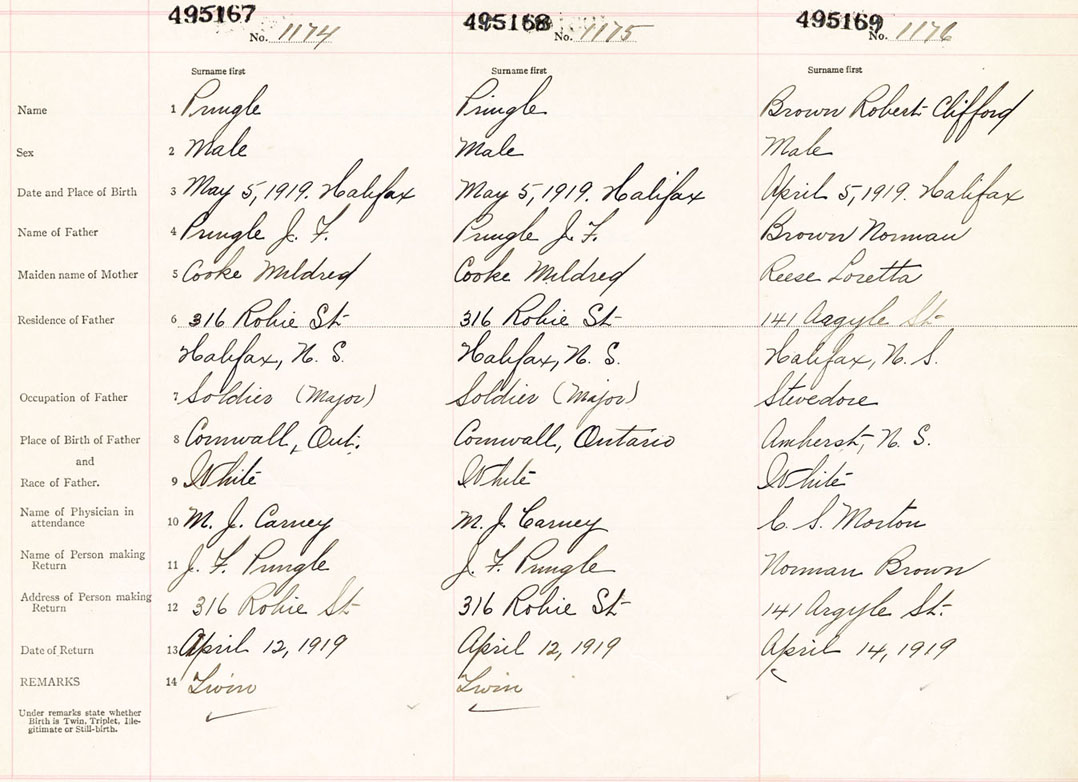 495167 495168 495169
No. 1174 No. 1175 No. 1176
Surname first Surname first Surname first
Name 1 Pringle Pringle Brown Robert Clifford
Sex 2 Male Male Male
Date and Place of Birth 3 May 5, 1919. Halifax May 5, 1919. Halifax April 5, 1919. Halifax
Name of Father 4 Pringle J. F. Pringle J. F. Brown Norman
Maiden name of Mother 5 Cooke Mildred Cooke Mildred Reese Loretta
Residence of Father 6 316 Robie St 316 Robie St 141 Argyle St
Halifax, N. S. Halifax, N. S. Halifax, N. S.
Occupation of Father 7 Soldier (Major) Soldier (Major) Stevedore
Place of Birth of Father 8 Cornwall, Ont. Cornwall, Ontario Amherst, N. S.
and
Race of Father. 9 White White White
Name of Physician in
attendance 10 M. J. Carney M. J. Carney C. S. Morton
Name of Person making
Return 11 J. F. Pringle J. F. Pringle Norman Brown
Address of Person making
Return 12 316 Robie St 316 Robie St 141 Argyle St.
Date of Return 13 April 12, 1919 April 12, 1919 April 14, 1919
REMARKS 14 Twin Twin
Under remarks state whether
Birth is Twin, Triplet, Ille-
gitimate or Still-birth.